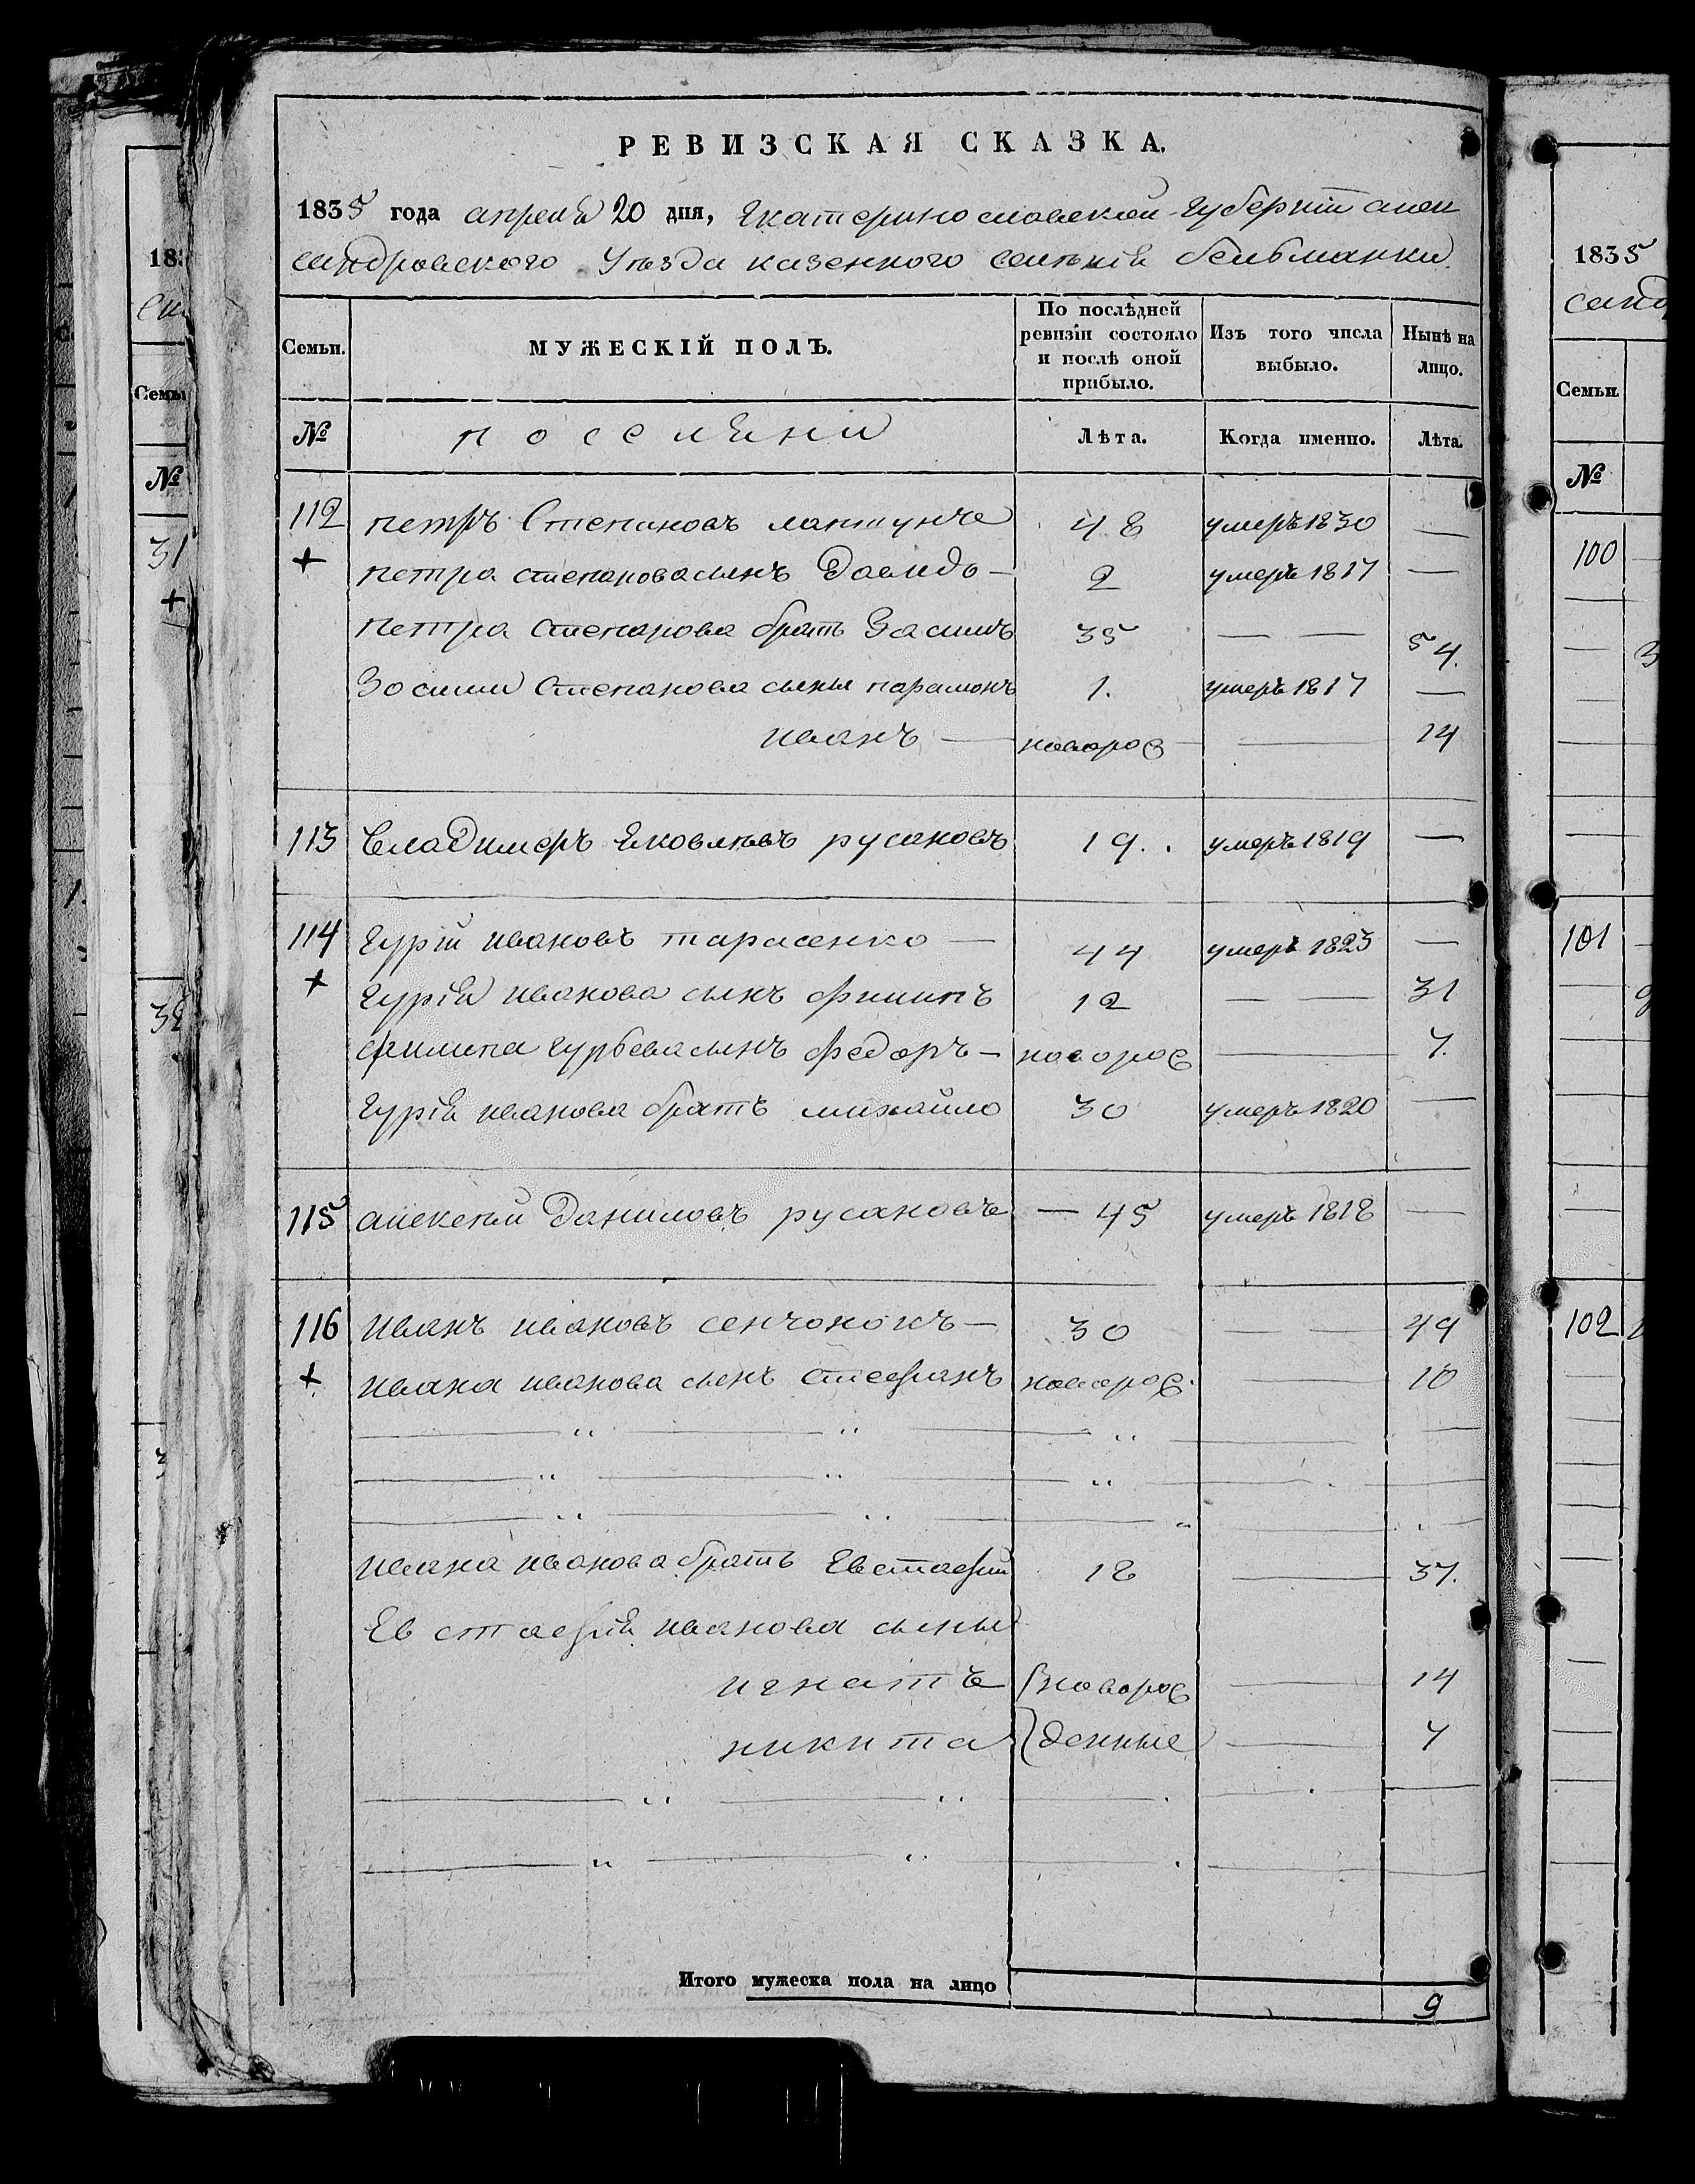 РЕВИЗСКАЯ СКАЗКА.
1835 года апреля 20 дня, Екатеринославской Губернiи алек
сандровского Уѣзда казенного селѣнiя бельманки
Семьи.
МУЖЕСКІЙ ПОЛЪ.
По послѣдней ревизіи состояло и послѣ оной прибыло.
Изъ того числа выбыло.
Нынѣ на лицо.
№ поселяни Лѣта. Когда именно. Лѣта.
112 петръ Степановъ 48 умеръ 1830 —
+ петра степанова сынъ Давидъ — 2 умеръ 1817 —
петра Степанова братъ Засимъ 35 — — 54.
Зосими Степанова сыны парамонъ 1. умеръ 1817 —
иванъ — новорож — 14
113 Владимеръ Яковлевъ русановъ 19. умеръ 1819 —
114 Гурiй ивановъ тарасенко — 44 умеръ 1823 —
+ Гурiя иванова сынъ филипъ 12 — — 31
филипа гурьева сынъ федоръ — новорож — 7.
Гурiя иванова братъ михайло 30 умеръ 1820 —
115 алексѣй Даниловъ русановъ — 45 умеръ 1818 —
116 Иванъ ивановъ сенчонокъ — 30 — — 49
+ ивана иванова сынъ стефанъ новорож. — 10
ивана иванова братъ Евстафiй 18 — 37.
Евстафiя иванова сыны
игнатъ новорож — 14
никита денные — 7
Итого мужеска пола на лицо 9
18
Семьи
№
31
+
1835
санд
Семьи.
№
100
101
102